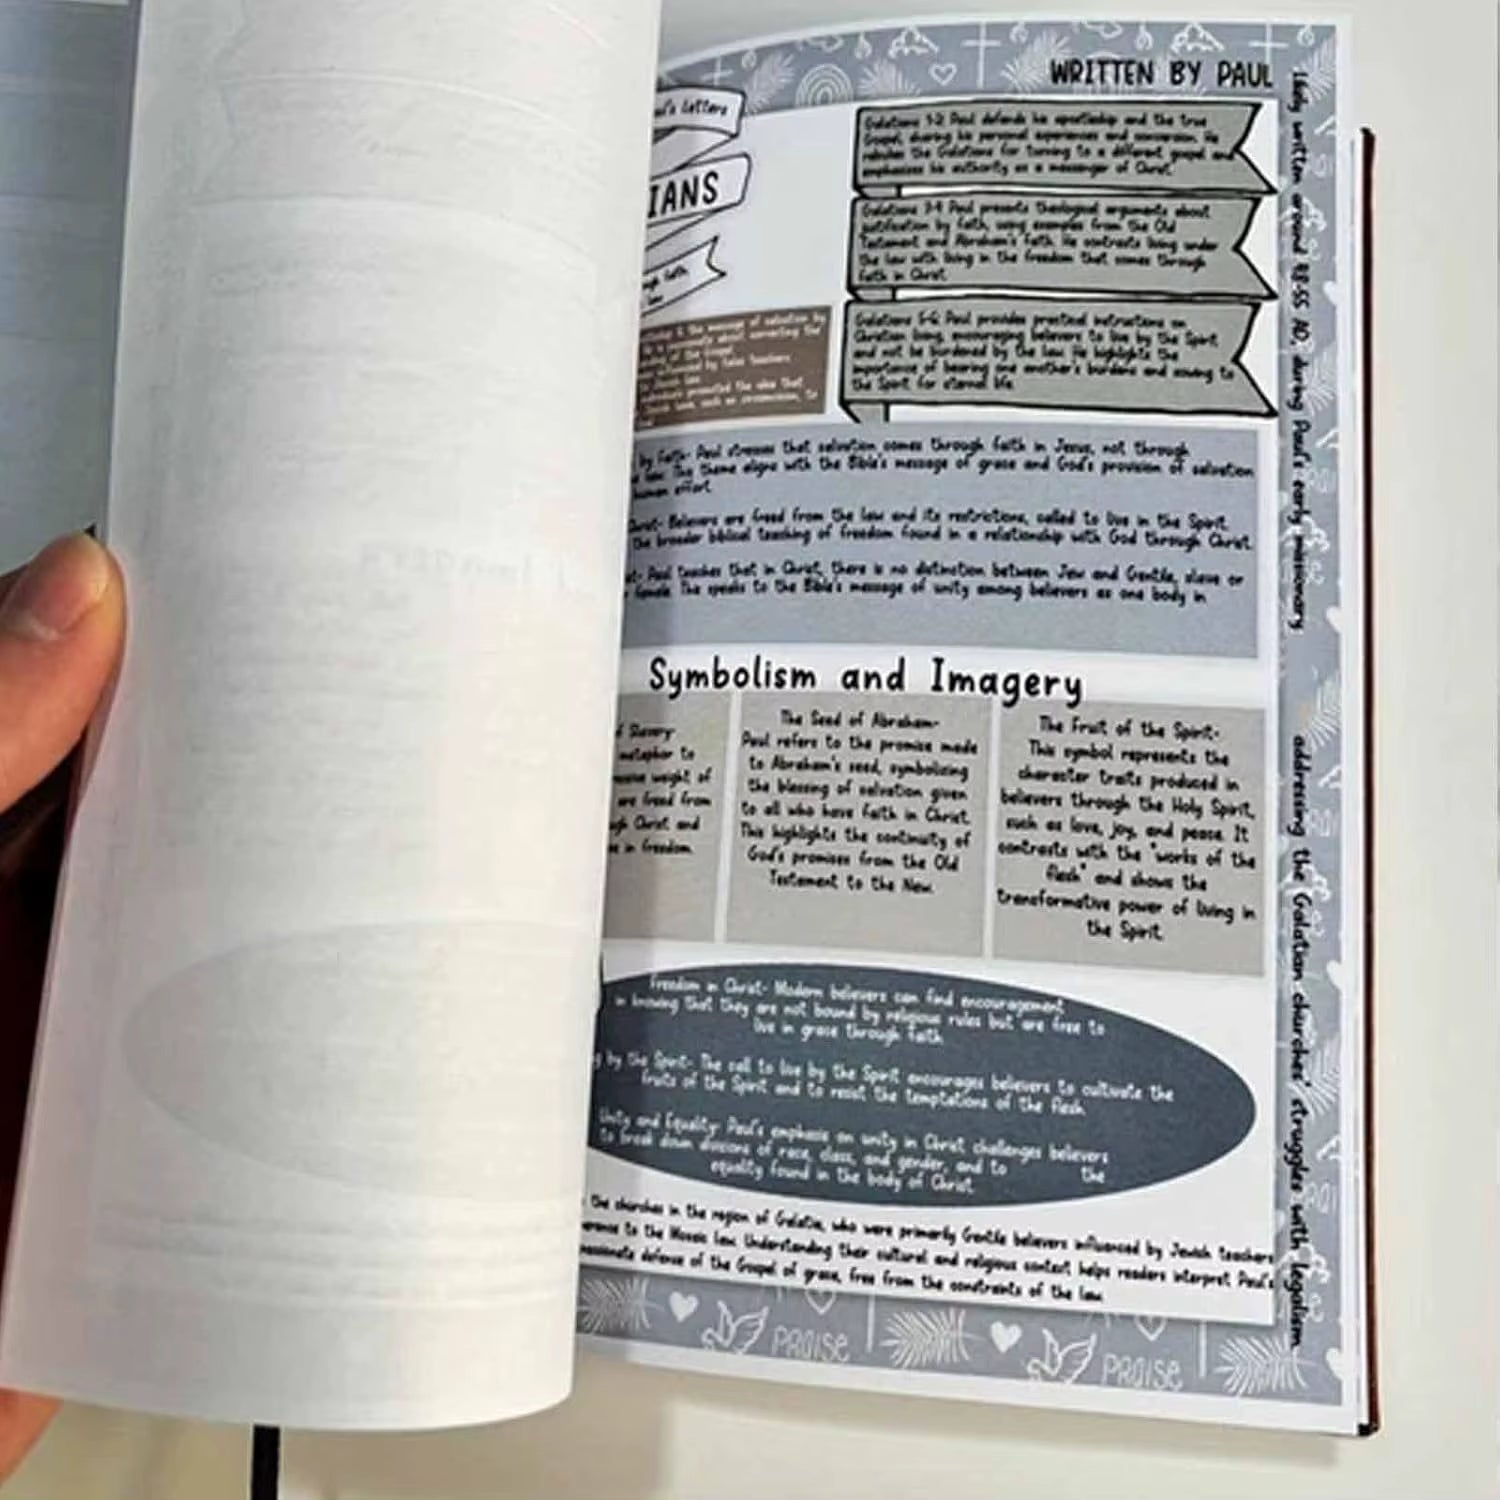 WRITTEN BY PAUL
Paul's Letters
IANS
ugh faith
law
Galatians 1-2: Paul defends his apostleship and the true
Gospel, sharing his personal experiences and conversion. He
rebukes the Galatians for turning to a different gospel and
emphasizes his authority as a messenger of Christ.
Galatians 3-4: Paul presents theological arguments about
justification by faith, using examples from the Old
Testament and Abraham's faith. He contrasts living under
the law with living in the freedom that comes through
faith in Christ.
Galatians 5-6: Paul provides practical instructions on
Christian living, encouraging believers to live by the Spirit
and not be burdened by the law. He highlights the
importance of bearing one another's burdens and sowing to
the Spirit for eternal life.
the message of salvation by
about correcting the
of the Gospel
influenced by false teachers
Jewish law.
individuals promoted the idea that
Jewish laws, such as circumcision, to
by Faith- Paul stresses that salvation comes through faith in Jesus, not through
law. This theme aligns with the Bible's message of grace and God's provision of salvation
human effort.
Christ- Believers are freed from the law and its restrictions, called to live in the Spirit.
the broader biblical teaching of freedom found in a relationship with God through Christ.
Paul teaches that in Christ, there is no distinction between Jew and Gentile, slave or
female. This speaks to the Bible's message of unity among believers as one body in
Symbolism and Imagery
of Slavery-
metaphor to
weight of
are freed from
ugh Christ and
in freedom.
The Seed of Abraham-
Paul refers to the promise made
to Abraham's seed, symbolizing
the blessing of salvation given
to all who have faith in Christ.
This highlights the continuity of
God's promises from the Old
Testament to the New.
The Fruit of the Spirit-
This symbol represents the
character traits produced in
believers through the Holy Spirit,
such as love, joy, and peace. It
contrasts with the "works of the
flesh" and shows the
transformative power of living in
the Spirit.
Freedom in Christ- Modern believers can find encouragement
in knowing that they are not bound by religious rules but are free to
live in grace through faith.
g by the Spirit- The call to live by the Spirit encourages believers to cultivate the
fruits of the Spirit and to resist the temptations of the flesh.
Unity and Equality- Paul's emphasis on unity in Christ challenges believers
to break down divisions of race, class, and gender, and to the
equality found in the body of Christ.
the churches in the region of Galatia, who were primarily Gentile believers influenced by Jewish teachers
erence to the Mosaic law. Understanding their cultural and religious context helps readers interpret Paul's
passionate defense of the Gospel of grace, free from the constraints of the law.
likely written around 48-55 AD, during Paul's early missionary
addressing the Galatian churches' struggles with legalism.
PRAISE
PRAISE